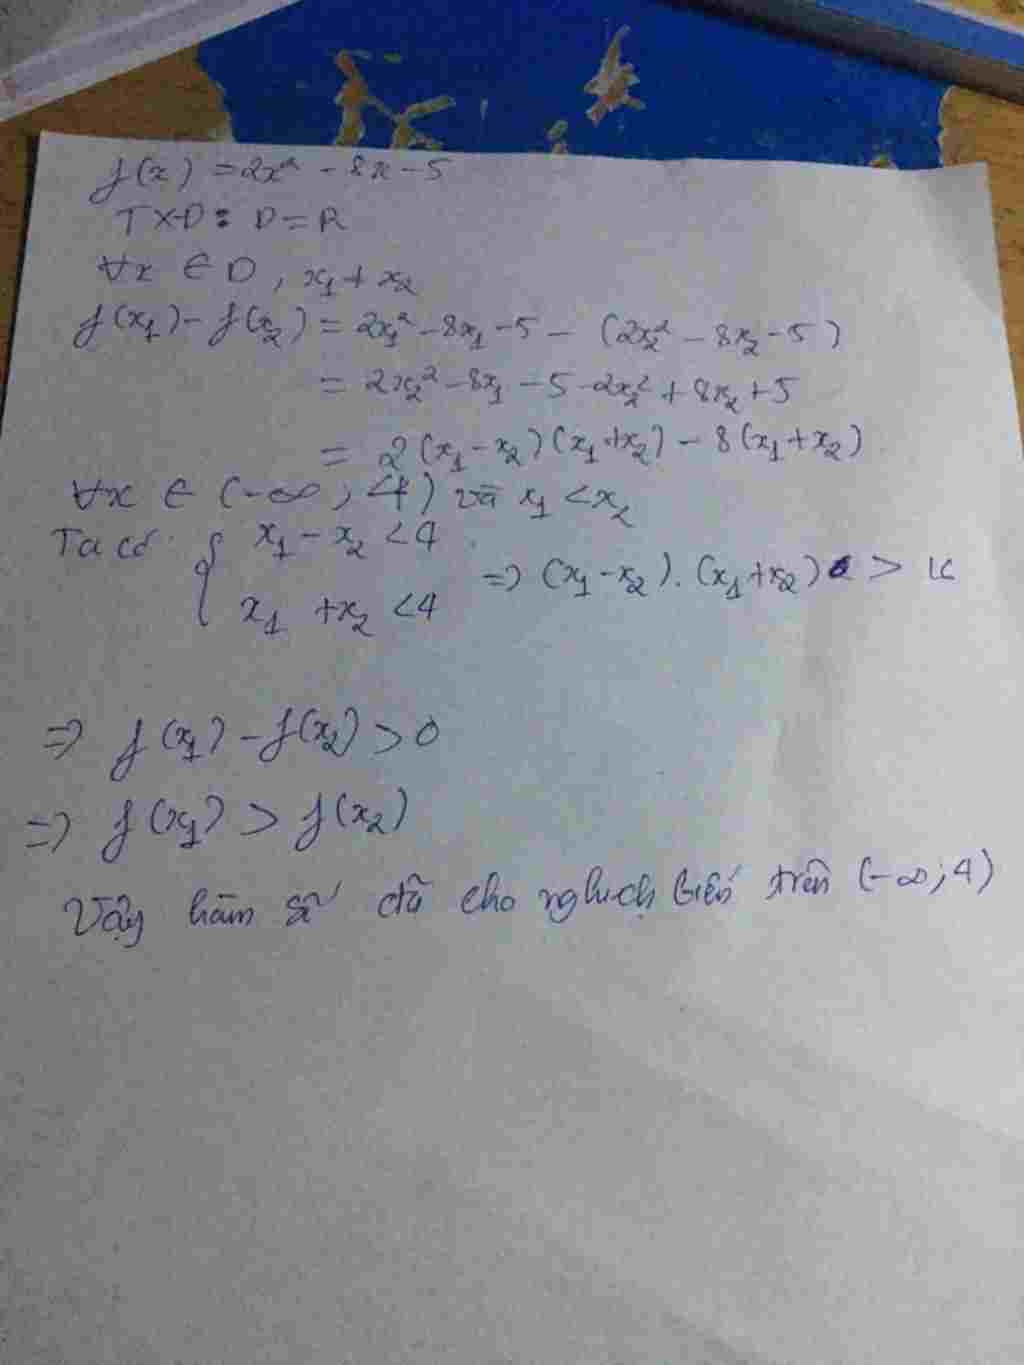 f(x) = 2x² - 8x - 5
TXĐ: D = R
∀x ∈ D, x₁ + x₂
f(x₁) - f(x₂) = 2x₁² - 8x₁ - 5 - (2x₂² - 8x₂ - 5)
= 2x₂² - 8x₁ - 5 - 2x₂² + 8x₂ + 5
= 2(x₁ - x₂)(x₁ + x₂) - 8(x₁ + x₂)
∀x ∈ (-∞; 4) và x₁ < x₂
Ta có { x₁ - x₂ < 4
x₁ + x₂ < 4 => (x₁ - x₂).(x₁ + x₂) >
=> f(x₁) - f(x₂) > 0
=> f(x₁) > f(x₂)
Vậy hàm số đã cho nghịch biến trên (-∞; 4)